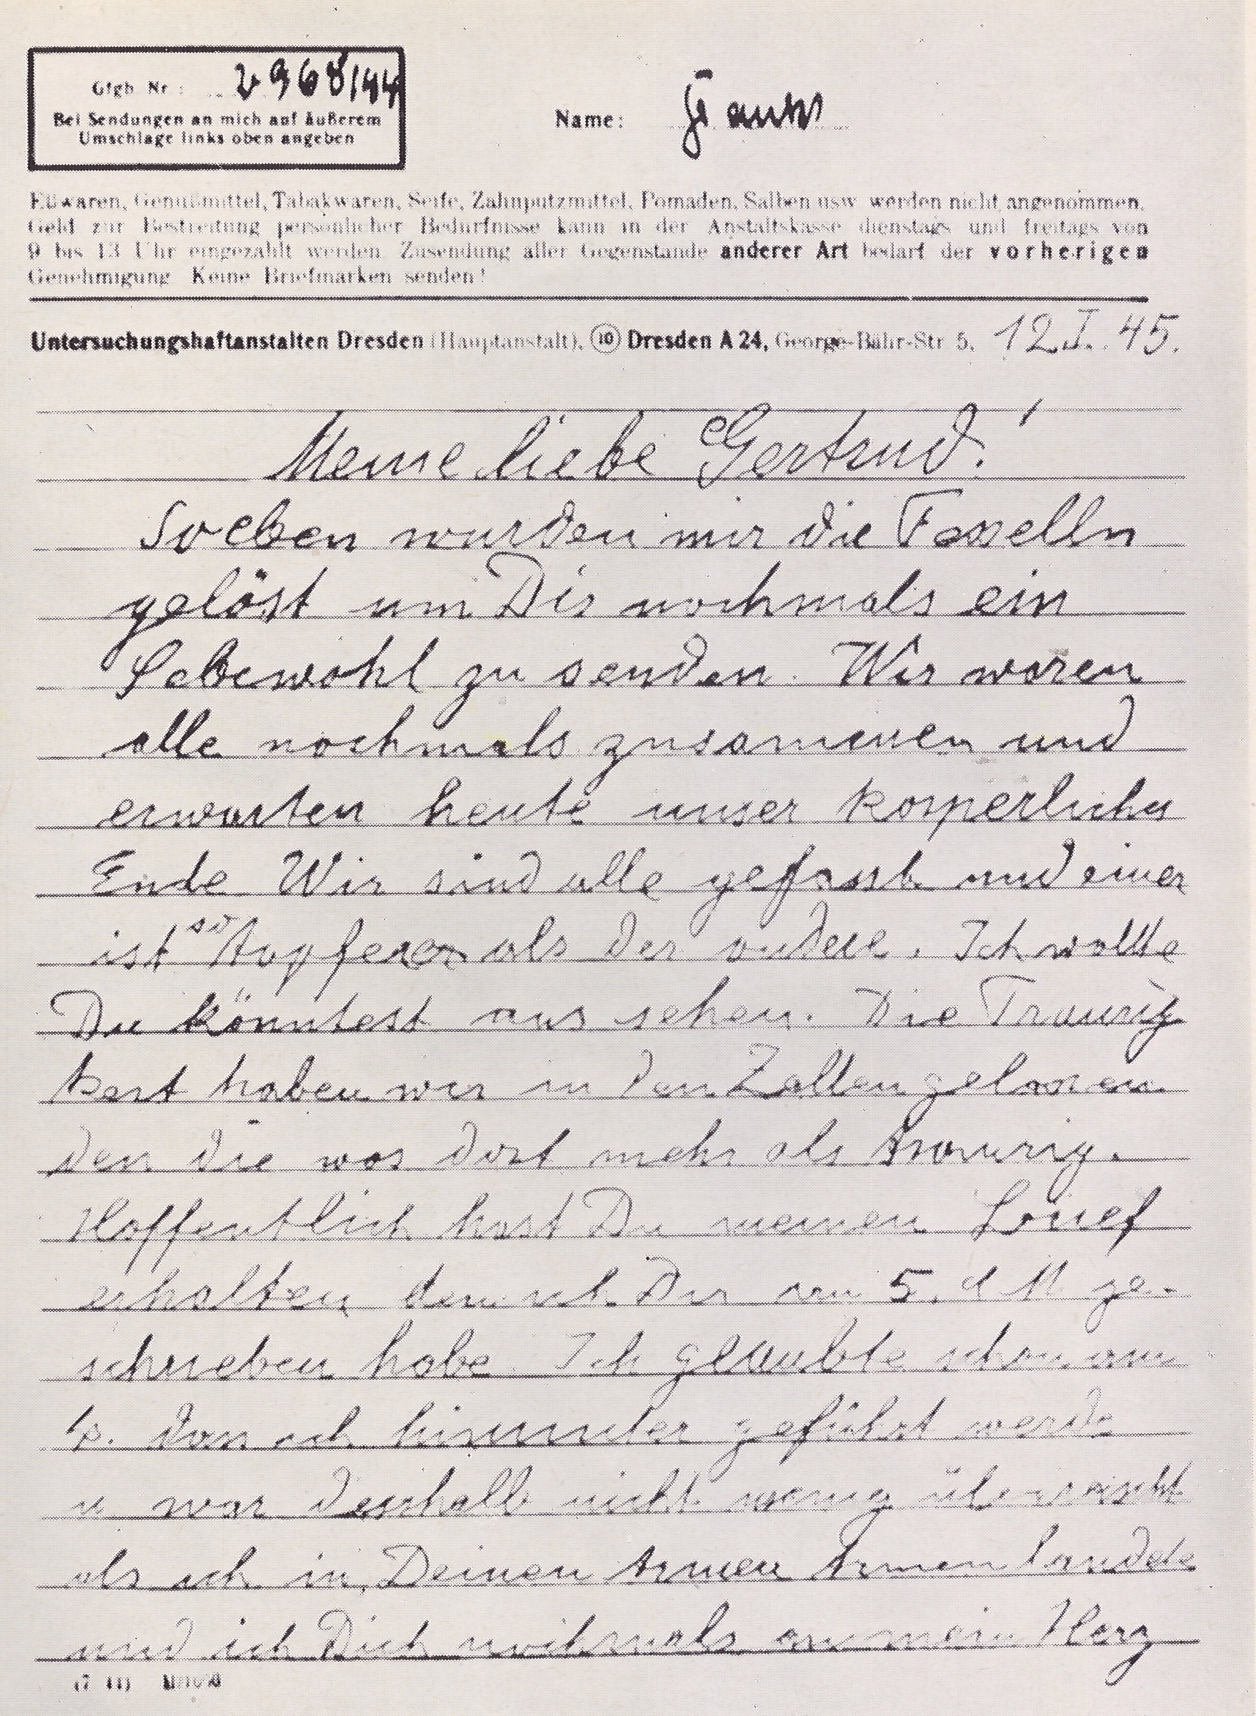 Gfgb. Nr.: 2968/44
Bei Sendungen an mich auf äußerem
Umschlage links oben angeben
Name:
Eßwaren, Genußmittel, Tabakwaren, Seife, Zahnputzmittel, Pomaden, Salben usw. werden nicht angenommen.
Geld zur Bestreitung persönlicher Bedürfnisse kann in der Anstaltskasse dienstags und freitags von
9 bis 13 Uhr eingezahlt werden. Zusendung aller Gegenstände anderer Art bedarf der vorherigen
Genehmigung. Keine Briefmarken senden!
Untersuchungshaftanstalten Dresden (Hauptanstalt), (10) Dresden A 24, George-Bähr-Str. 5, 12.I.45.
Meine liebe Gertrud!
Soeben wurden mir die Fesselln
gelöst um Dir nochmals ein
Lebewohl zu senden. Wir waren
alle nochmals zusammen und
erwarten heute unser körperliches
Ende Wir sind alle gefasst und einer
ist so tapferer als der andere. Ich wollte
Du könntest uns sehen. Die Traurig
keit haben wir in den Zellen gelassen
den die was dort mehr als traurig.
Hoffentlich hast Du meinen Brief
erhalten den ich Dir am 5. d M ge-
schrieben habe. Ich glaubte schon am
ich hinunter geführt werde
u war desshalb nicht wenig überrascht
als ich in Deinen Armen Armen landete
und ich Dich nochmals an mein Herz
(7. 44)